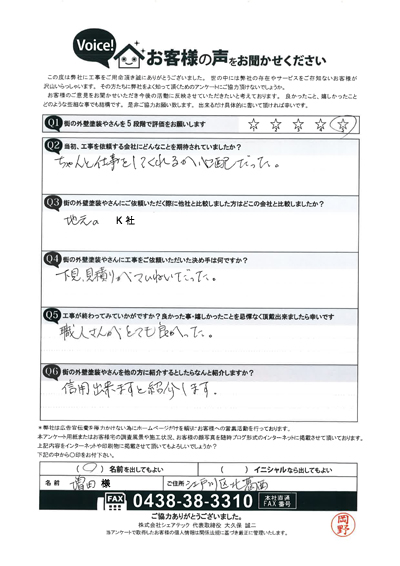 Voice!
お客様の声をお聞かせください
この度は弊社に工事をご用命頂き誠にありがとうございました。世の中には弊社の存在やサービスをご存知ないお客様が
沢山いらっしゃいます。その方たちに弊社をよく知って頂くためのアンケートにご協力頂けないでしょうか。
お客様のご意見をお聞かせいただき今後の活動に反映させていただきたいと考えております。良かったこと、嬉しかったこと
どのような些細な事でも結構です。是非ご協力お願い致します。出来るだけ具体的に書いて頂ければ幸いです。
Q1 街の外壁塗装やさんを5段階で評価をお願いします ☆ ☆ ☆ ☆ ☆
Q2 当初、工事を依頼する会社にどんなことを期待されていましたか?
ちゃんと仕事をしてくれるか心配だった。
Q3 街の外壁塗装やさんにご依頼いただく際に他社と比較しました方はどこの会社と比較しましたか?
地元の K社
Q4 街の外壁塗装やさんに工事をご依頼いただいた決め手は何ですか?
下見、見積りがていねいだった。
Q5 工事が終わってみていかがですか?良かった事・嬉しかったことを忌憚なく頂戴出来ましたら幸いです
職人さんがとても良かった。
Q6 街の外壁塗装やさんを他の方に紹介するとしたらなんと紹介しますか?
信用出来ますと紹介します。
*弊社は広告宣伝費を極力かけない為にホームページだけを頼りにお客様への営業活動を行っております。
本アンケート用紙またはお客様宅の調査風景や施工状況、お客様の顔写真を随時ブログ形式のインターネットに掲載させて頂いております。
上記内容をインターネットや印刷物に掲載させて頂いてもよろしいでしょうか?
下記の中から○印をお付け下さい。
(○)名前を出してもよい ( )イニシャルなら出してもよい
名前 増田 様 ご住所 江戸川区北葛西
FAX 0438-38-3310 本社直通 FAX番号
ご協力ありがとうございました。
株式会社シェアテック 代表取締役 大久保 誠二
当アンケートで取得したお客様の個人情報は関係法規に基づき厳正に管理いたします。
岡野